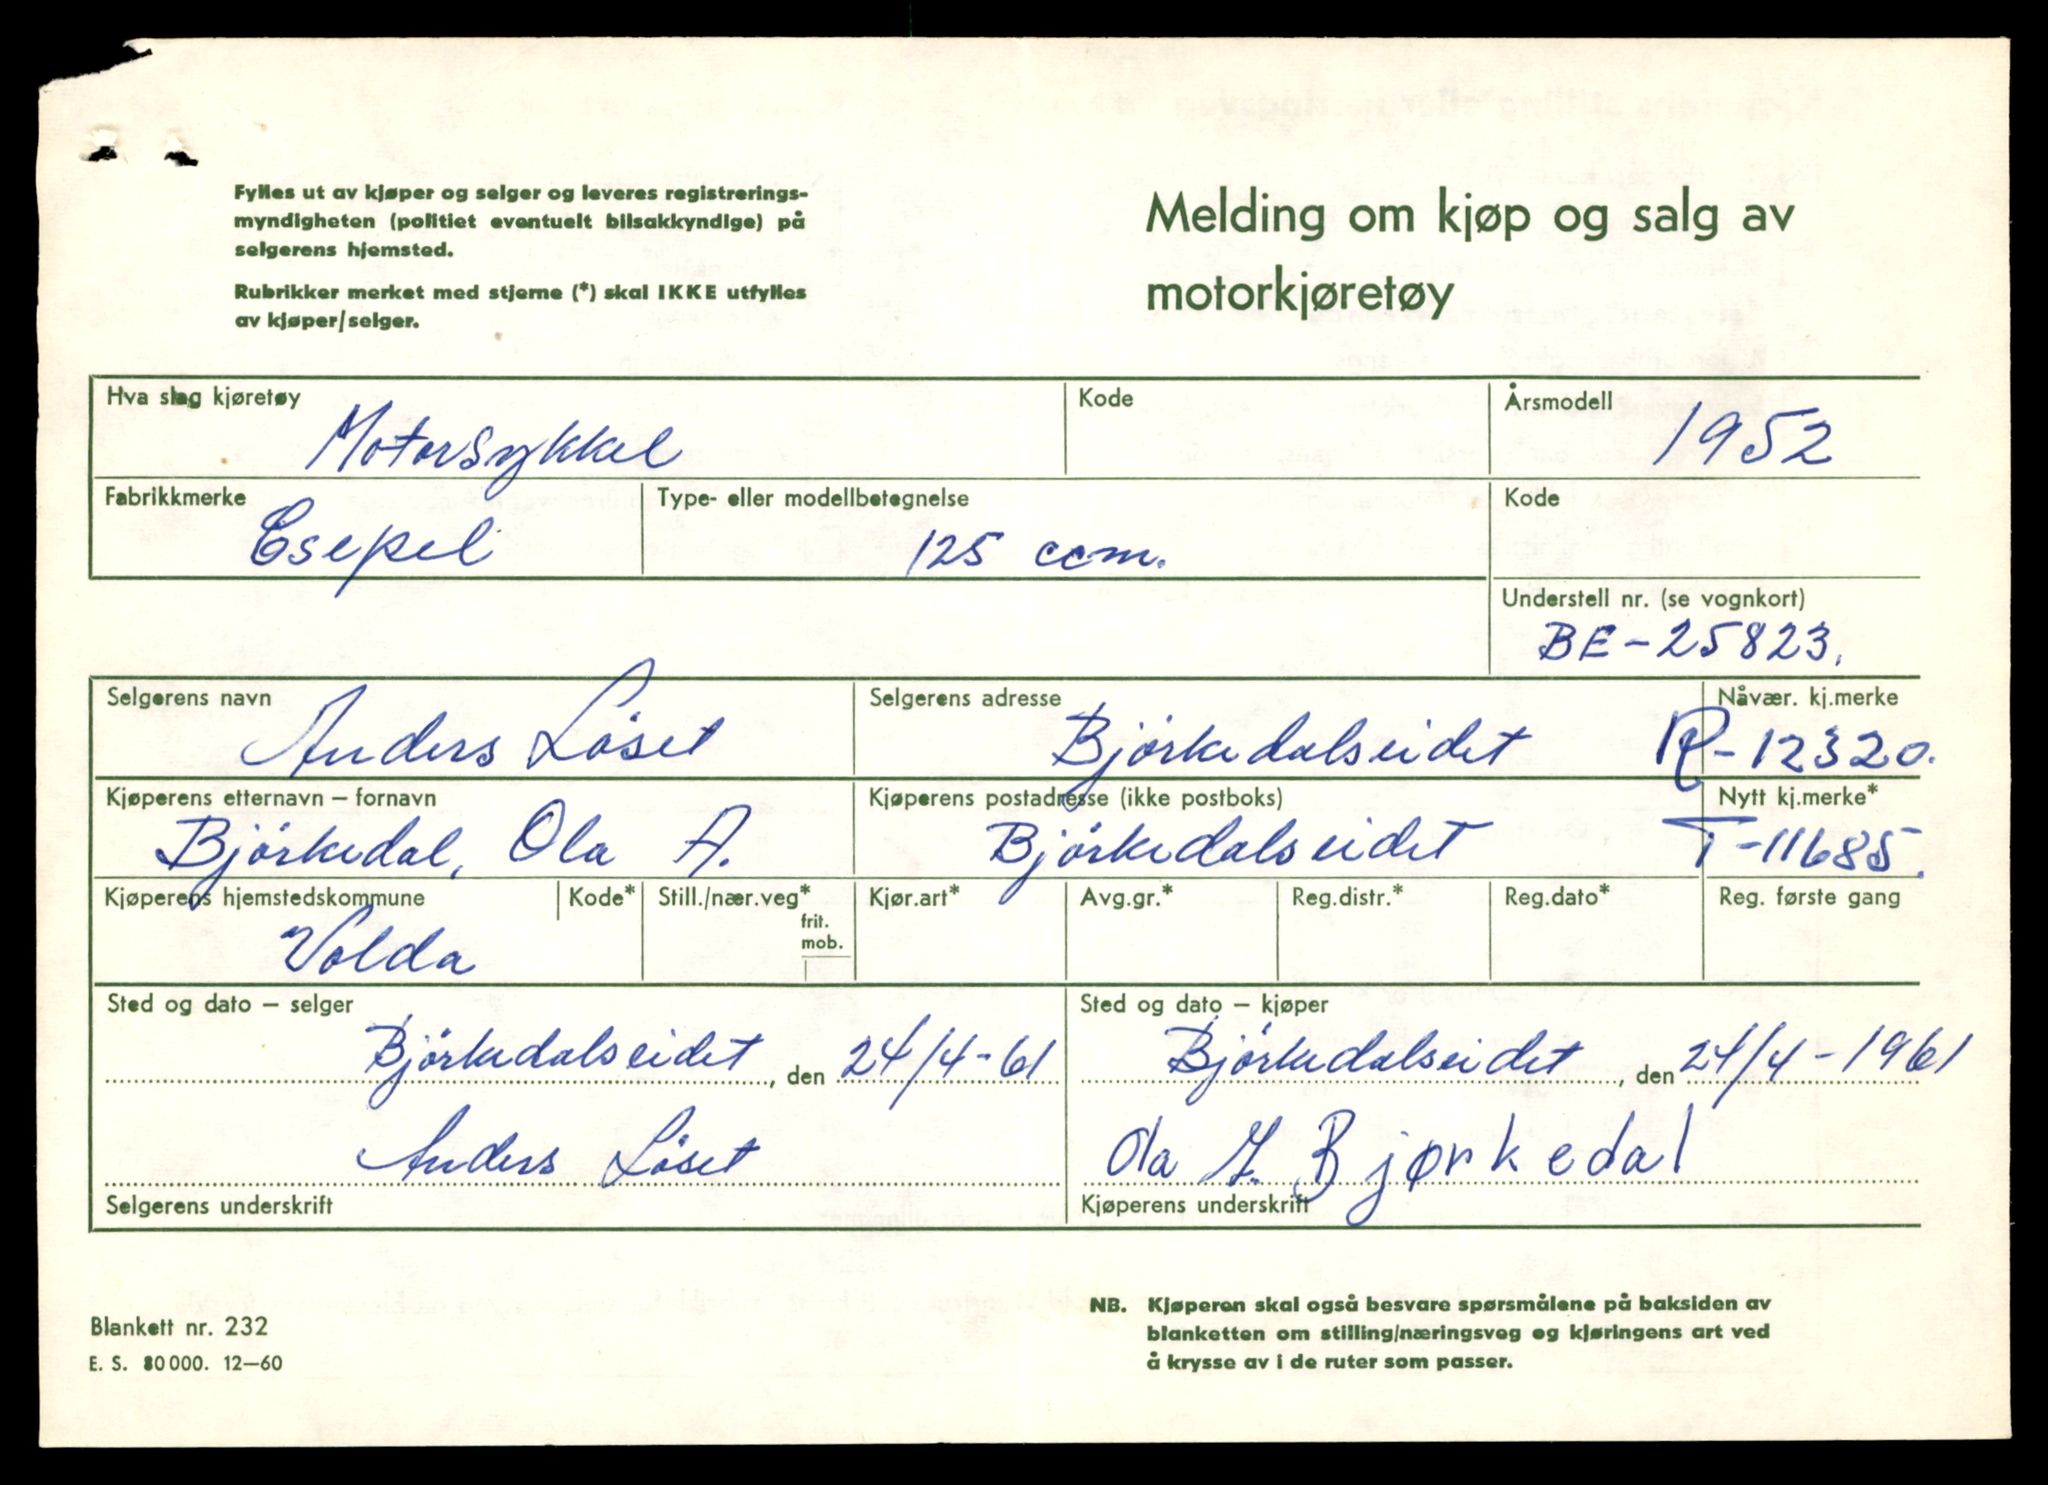 Fylles ut av kjøper og selger og leveres registrerings-
myndigheten (politiet eventuelt bilsakkyndige) på
selgerens hjemsted.
Rubrikker merket med stjerne (*) skal IKKE utfylles
av kjøper/selger.
Melding om kjøp og salg av
motorkjøretøy
Hva slag kjøretøy
Motorsykkel
Kode
Årsmodell
1952
Fabrikkmerke
Csepel
Type- eller modellbetegnelse
125 ccm.
Kode
Understell nr. (se vognkort)
BE-25823.
Selgerens navn
Anders Löset
Selgerens adresse
Björkedalseidet
Nåvær. kj.merke
R-12320.
Kjøperens etternavn – fornavn
Björkedal, Ola A.
Kjøperens postadresse (ikke postboks)
Björkedalseidet
Nytt kj.merke*
T-11685.
Kjøperens hjemstedskommune
Volda
Kode*
Still./nær.veg*
frit.
mob.
Kjør.art*
Avg.gr.*
Reg.distr.*
Reg.dato*
Reg. første gang
Sted og dato – selger
Björkedalseidet, den 24/4-61
Anders Löset
Selgerens underskrift
Sted og dato – kjøper
Björkedalseidet, den 24/4-1961
Ola Bjørkedal
Kjøperens underskrift
Blankett nr. 232
E. S. 80000. 12–60
NB. Kjøperen skal også besvare spørsmålene på baksiden av
blanketten om stilling/næringsveg og kjøringens art ved
å krysse av i de ruter som passer.